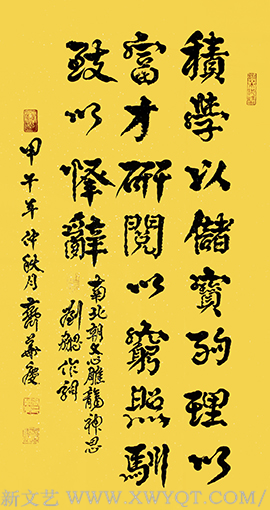 積學以儲寶酌理以
富才研閱以窮照馴
致以懌辭
南北朝文心雕龍神思
劉勰作詞
甲午年仲秋月齊華慶
新文艺 / WWW.XWYQT.COM/